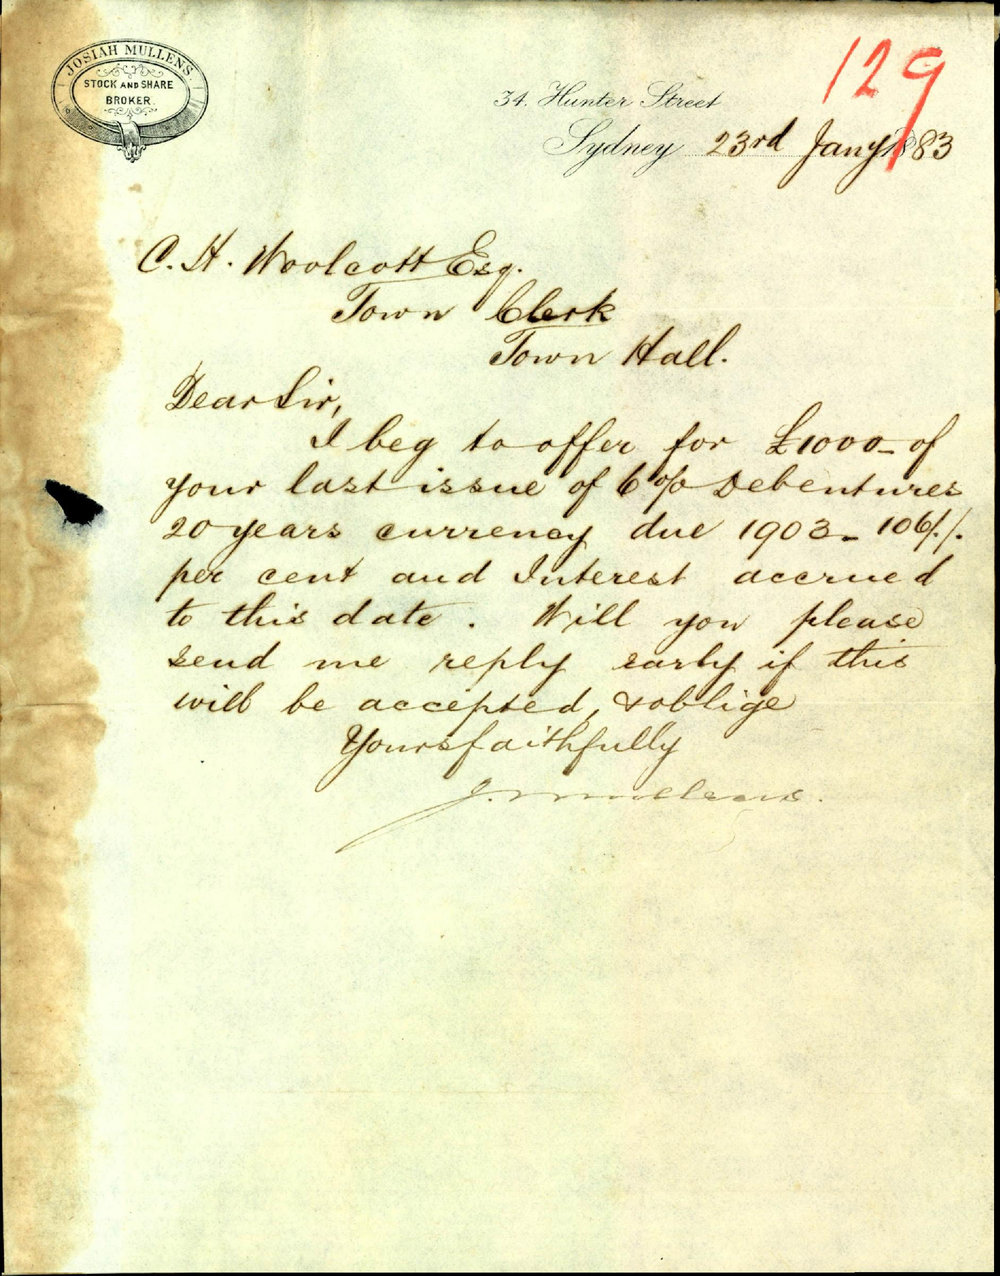 JOSIAH MULLENS.
STOCK AND SHARE
BROKER.
129
34. Hunter Street
Sydney 23rd Jany 1883
C. H. Woolcott Esq.
Town Clerk
Town Hall.
Dear Sir,
I beg to offer for £1000 - of
your last issue of 6 % Debentures
20 years currency due 1903 - 106/./.
per cent and Interest accrued
to this date. Will you please
send me reply early if this
will be accepted, & oblige
Yours faithfully
J. Mullens.